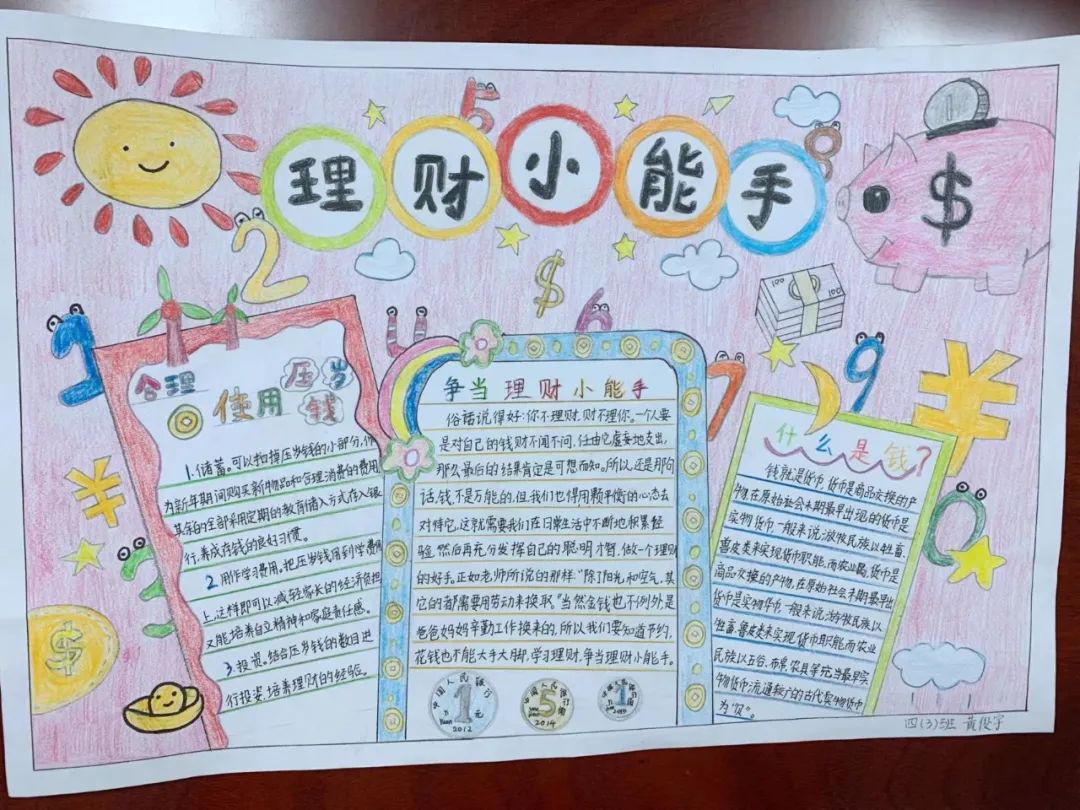 理财小能手
合理
使用
压岁钱
1.储蓄。可以扣掉压岁钱的小部分,作
为新年期间购买新物品和合理消费的费用,
其余的全部采用定期的教育储入方式存入银
行,养成存钱的良好习惯。
2.用作学习费用。把压岁钱用到学费用
上,这样即可以减轻家长的经济负担,
又能培养自立精神和家庭责任感。
3.投资。结合压岁钱的数目进
行投资,培养理财的经验。
争当理财小能手
俗话说得好:你不理财,财不理你。一个人要
是对自己的钱财不闻不问,任由它虚妄地支出,
那么最后的结果肯定是可想而知。所以,还是那句
话,钱不是万能的,但我们也得用颗平衡的心态去
对待它,这就需要我们在日常生活中不断地积累经
验,然后再充分发挥自己的聪明才智,做一个理财
的好手。正如老师所说的那样:“除了阳光和空气,其
它的都需要用劳动来换取。”当然金钱也不例外,是
爸爸妈妈辛勤工作换来的,所以我们要知道节约,
花钱也不能大手大脚,学习理财,争当理财小能手。
什么是钱?
钱就是货币,货币是商品交换的产
物,在原始社会末期最早出现的货币是
实物货币,一般来说,游牧民族以牲畜、
兽皮类来实现货币职能,而农业
商品交换的产物,在原始社会末期最早出
货币是实物货币,一般来说,游牧民族以
牲畜、兽皮类来实现货币职能,而农业
民族以五谷、布帛、农具等充当最早实
物货币,流通较广的古代实物货币
为“贝”。
1
2
3
4
5
6
7
8
9
0
$
$
$
¥
¥
1
100
100
中国人民银行
1
YI YUAN
元
2012
5
2014
1
四(3)班 黄俊宇